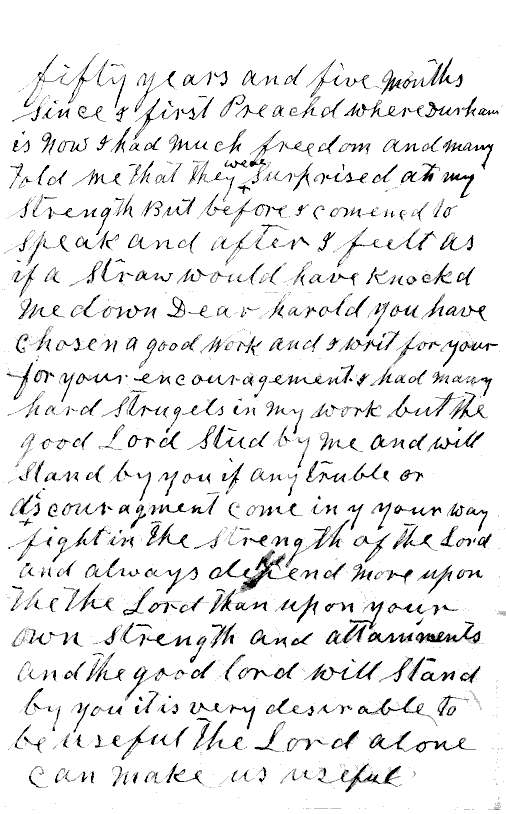 fifty years and five months
Since I first Preachd where Durham
is now I had much freedom and many
told me that they were Surprised at my
Strength But before I comened to
Speak and after I feelt as
if a Straw would have knockd
me down Dear harold you have
chosen a good work and I writ for your
for your encouragement I had many
hard Strugels in my work but the
good Lord Stud by me and will
Stand by you if any truble or
discouragment come in y your way
fight in the Strength of the Lord
and always depend more upon
the the Lord than upon your
own Strength and attainments
and the good lord will Stand
by you it is very desirable to
be useful the Lord alone
can make us useful